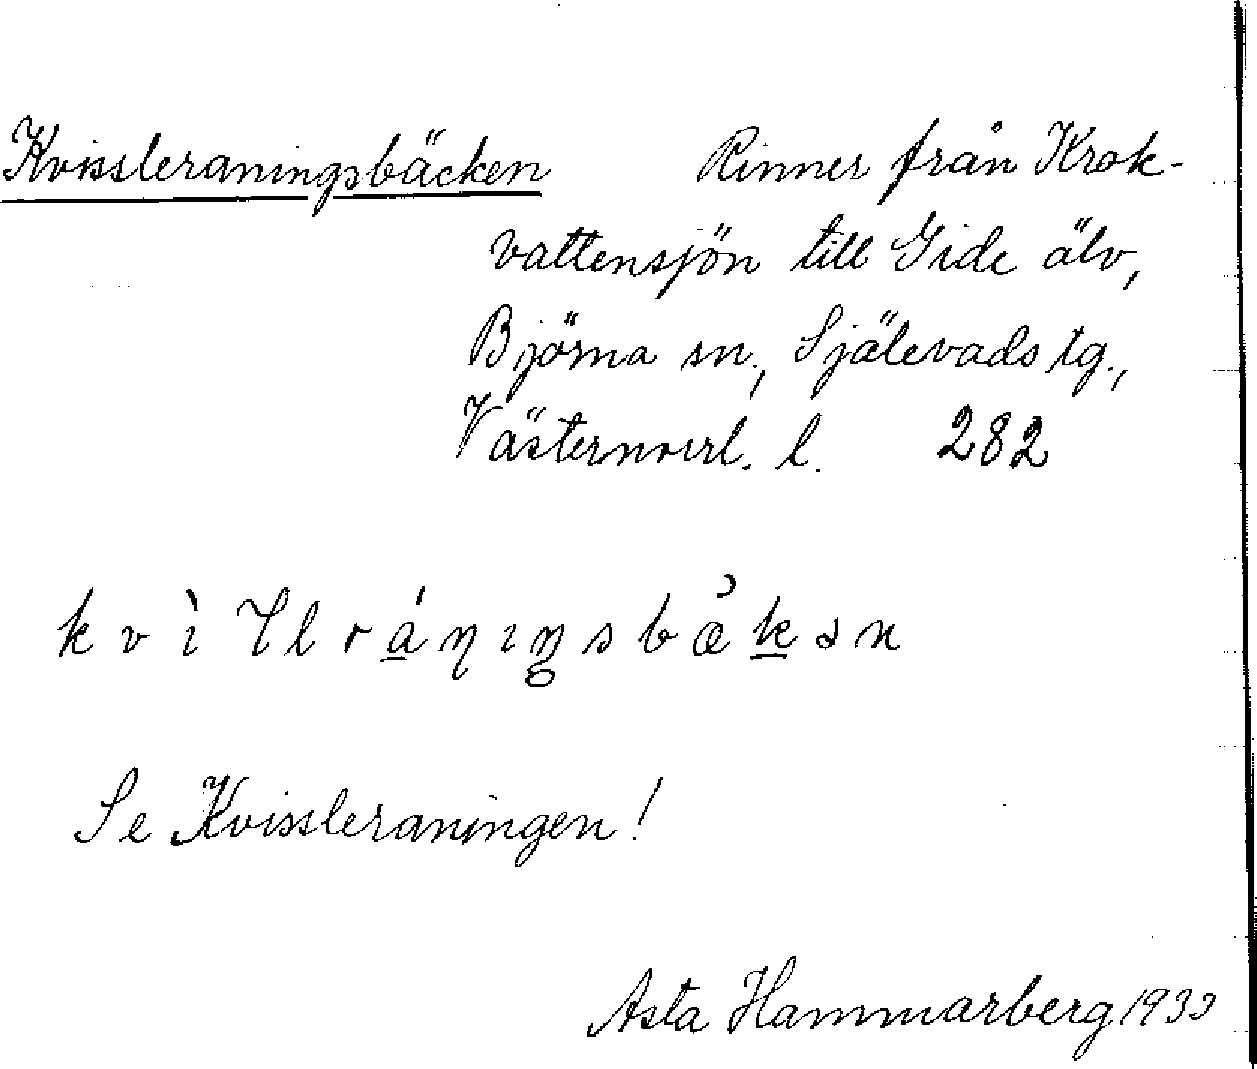 Kvissleraningsbäcken Rinner från Krok-
vattensjön till Gide älv,
Björna sn., Själevads tg.,
Västernorrl. l. 282
Se Kvissleraningen!
Asta Hammarberg 1933